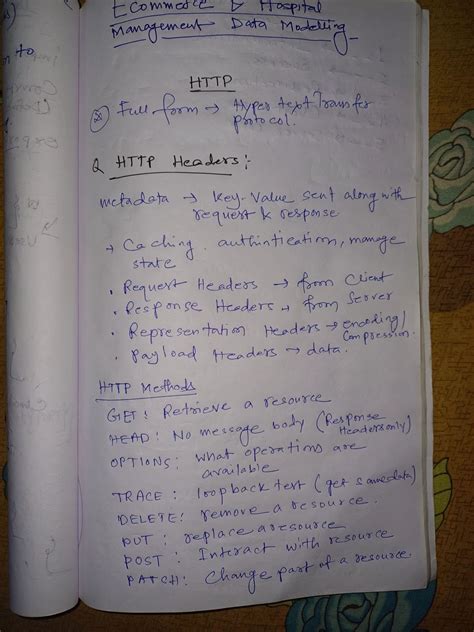 Ecommerce & Hospital
Management Data Modelling
HTTP
Full form → Hyper text Transfer
protocol.
Q HTTP Headers:
metadata → key-value sent along with
request & response
→ Caching, authintication, manage
state
• Request Headers → from Client
• Response Headers → from Server
• Representation Headers → encoding/
Compression
• Payload Headers → data.
HTTP Methods
GET: Retrieve a resource
HEAD: No message body (Response
Headers only)
OPTIONS: what operations are
available
TRACE: loopback test (get same data)
DELETE: remove a resource.
PUT: replace a resource
POST: Interact with resource
PATCH: Change part of a resource.